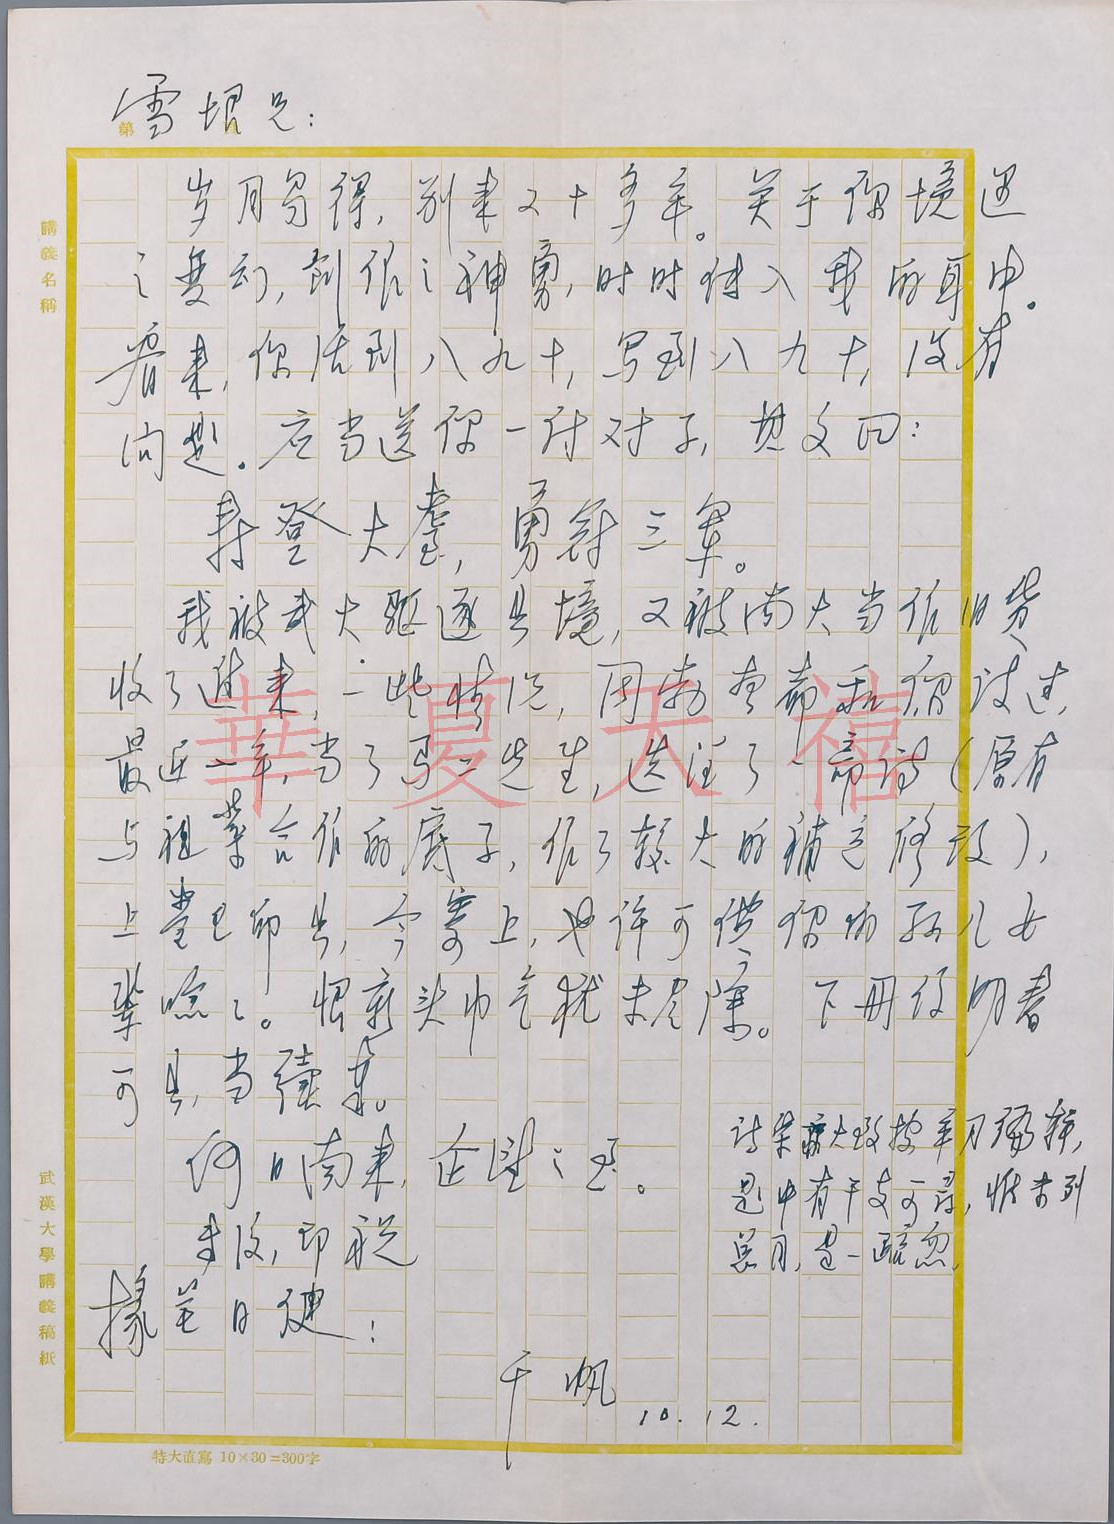 雪垠兄：
岁月易得，别来二十多年。关于你境遇
之变动，创作之神勇，时时传入我的耳中。
看来，你活到八九十，写到八九十，没有
问题。应当送你一付对子，其文曰：
寿登大耋，勇冠三军。
我被武大驱逐出境，又被南大当作旧货
收了进来，一些情况，
最近一年，当了马二先生，选注了一部诗（原有
与祖棻合作的底子，作了较大的补充修改），
上叠已印出，今寄上，也许可供你的孙儿女
辈念念。恨头巾气犹未尽除。下册后明春
可出，当续寄。
何日南来，企望之至。
专复，即祝
椽笔日健！
千帆
10.12.
诗策大致按年月编排，
题中有干支可寻，惟未列
总目，是一疏忽。
講義名稱
武漢大學講義稿紙
特大直寫 10×30=300字
華夏天禧